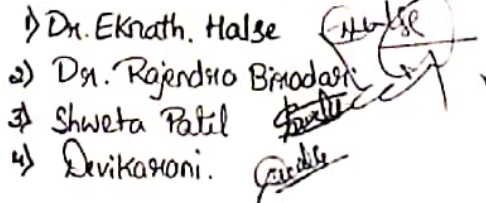 1) Dr. Eknath. Halse
2) Dr. Rajendra Biradar
3) Shweta Patil
4) Devikarani.